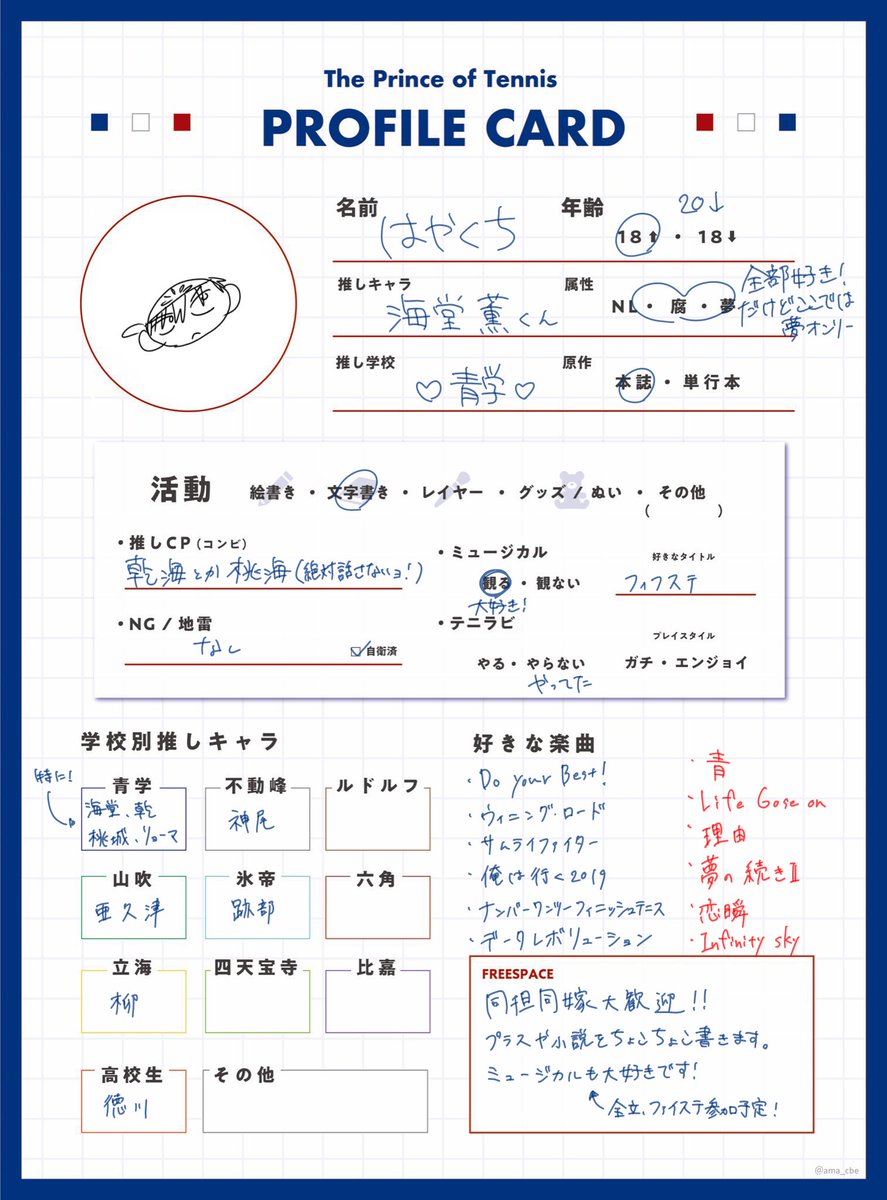 The Prince of Tennis
PROFILE CARD
名前
はやくち
年齢
20↓
18⬆・18⬇
推しキャラ
海堂薫くん
属性
NL・腐・夢
全部好き!
だけどここでは
夢オンリー
推し学校
♡青学♡
原作
本誌・単行本
活動
絵書き・文字書き・レイヤー・グッズ/ぬい・その他
( )
・推しCP(コンビ)
乾海とか桃海(絶対話さないョ!)
・NG/地雷
なし
☑自衛済
・ミュージカル
観る・観ない
大好き!
好きなタイトル
フィフステ
・テニラビ
やる・やらない
やってた
プレイスタイル
ガチ・エンジョイ
学校別推しキャラ
特に!
青学
海堂、乾
桃城、リョーマ
不動峰
神尾
ルドルフ
山吹
亜久津
氷帝
跡部
六角
立海
柳
四天宝寺
比嘉
高校生
徳川
その他
好きな楽曲
・Do your Best!
・ウィニング・ロード
・サムライファイター
・俺は行く2019
・ナンバーワンツーフィニッシュテニス
・データレボリューション
・青
・Life Gose on
・理由
・夢の続きⅡ
・恋瞬
・Infinity sky
FREESPACE
同担同嫁大歓迎!!
プラスや小説をちょこちょこ書きます。
ミュージカルも大好きです!
全立、ファイステ参加予定!
@ama_cbe